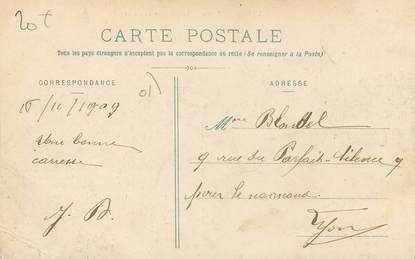 20f
CARTE POSTALE
Tous les pays étrangers n'acceptent pas la correspondance au recto (Se renseigner à la Poste)
CORRESPONDANCE
ADRESSE
01)
16/11/1909
Une bonne
carresse
J. B.
Mme Blondel
9 rue du Parfait-Silence 9
pour le normand.
Lyon